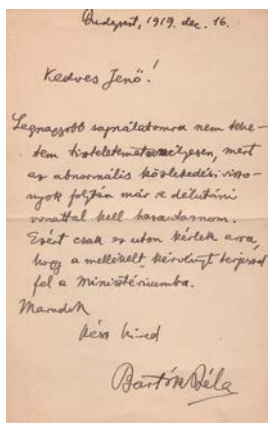 Budapest, 1919. dec. 16.
Kedves Jenő!
Legnagyobb sajnálatomra nem tehe-
tem tiszteletemet személyesen, mert
az abnormális közlekedési viszo-
nyok folytán már a délutáni
vonattal kell hazautaznom.
Ezért csak ez uton kérlek arra,
hogy a mellékelt kérvényt terjeszd
fel a Minisztériumba.
Maradok
kész hived
Bartók Béla